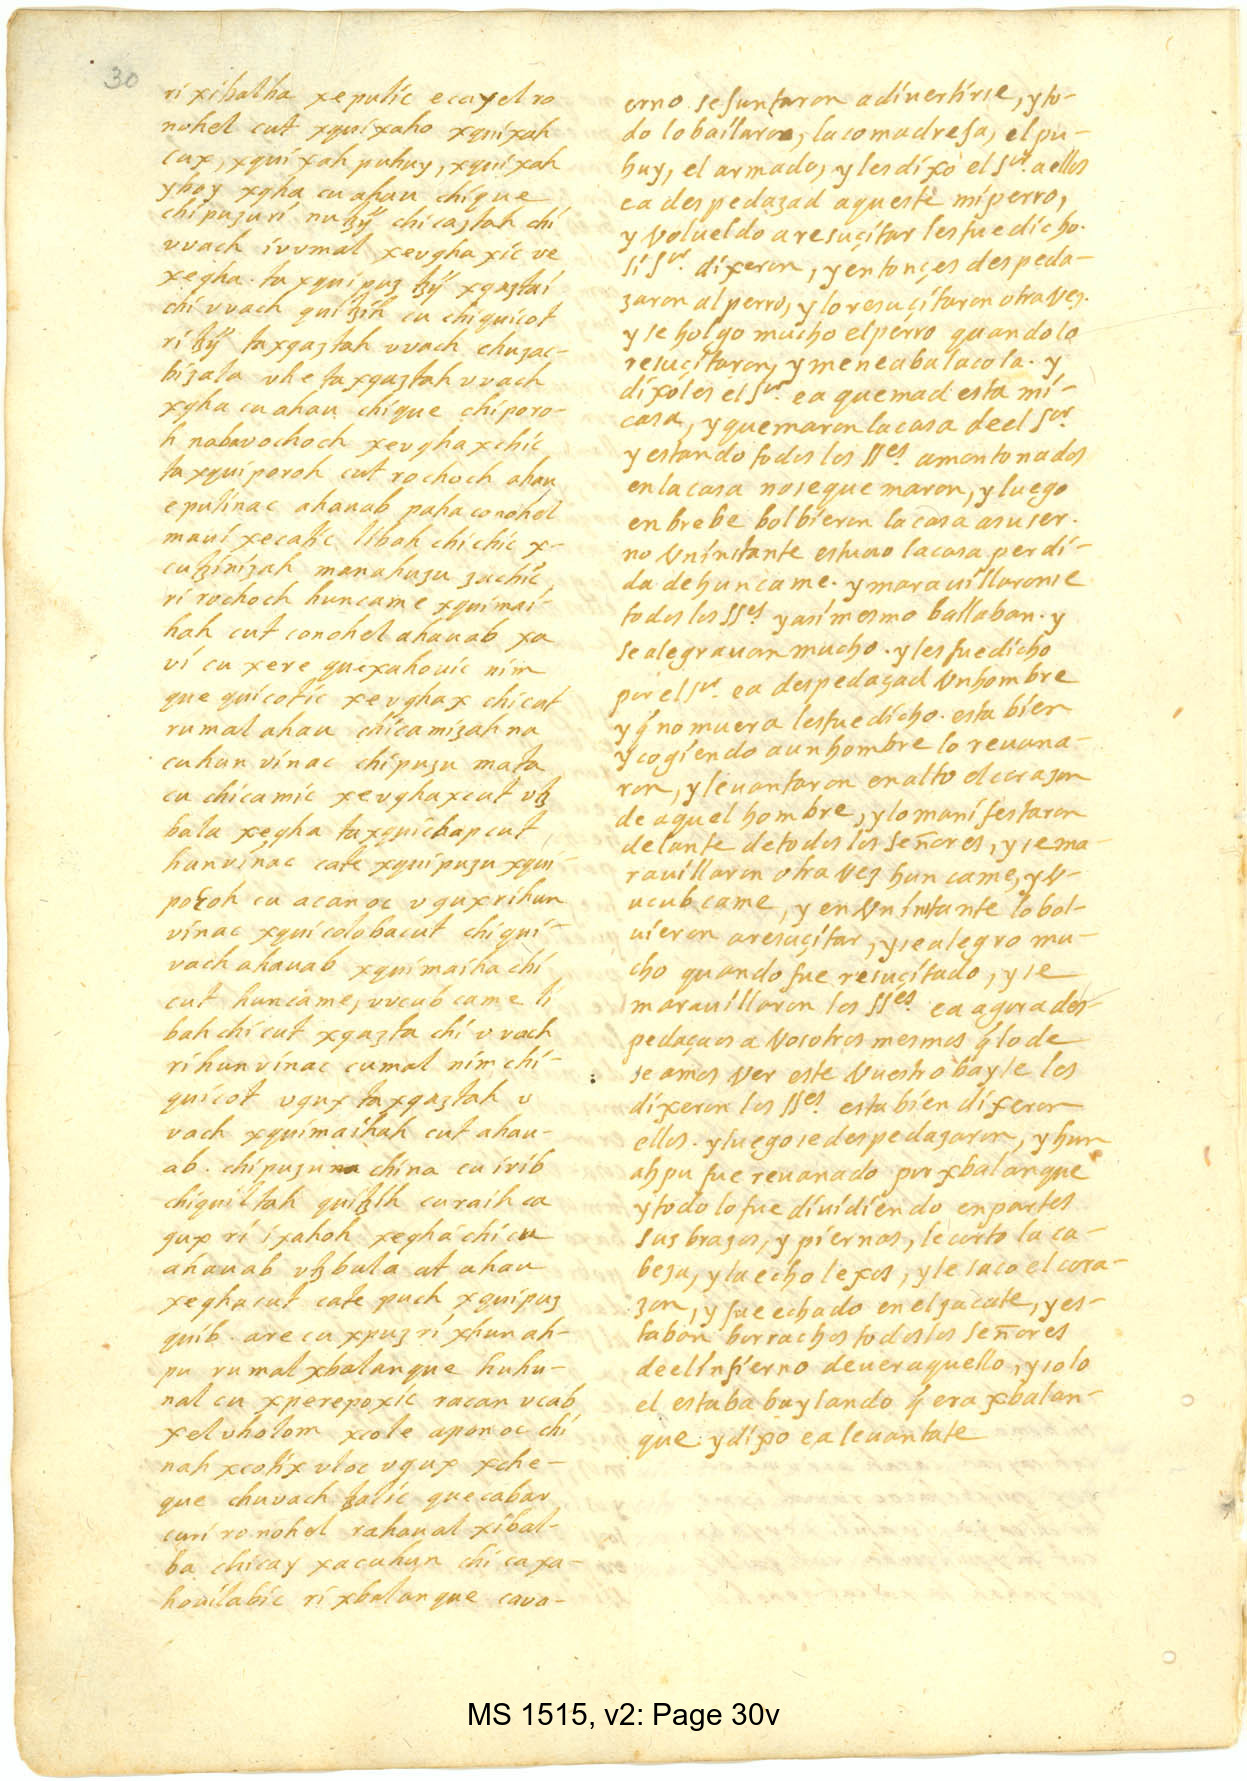 30
ri xibalba xepulic ecayel ro
nohel cut xquixaho xquixah
cux, xquixah puhuy, xquixah
yboy xgha cu ahau chique
chipuzuri nutzÿ chicaztah chi
vvach ivvmal xevghaxic ve
xegha. ta xquipuz tzÿ xqaztai
chi vvach quitzih cu chiquicot
ri tzÿ taxqaztah vvach chuzac-
bizala vhe taxqaztah vvach
xgha cu ahau chique chiporo-
h nabavochoch xevghaxchic
taxquiporoh cut rochoch ahau
epulinac ahauab paha conohel
maui xecatic libah chichic x-
cutzinizah manahuzu zachic
ri rochoch huncame xquimai-
hah cut conohel ahauab xa
vi cu xere quexahouic nim
que quicotic xevghax chicut
rumal ahau chicamizah na
cuhun vinac chipuzu mata
cu chicamic xevghaxcut vtz
bala xegha taxquichap cut
hunvinac cate xquipuzu xqui-
poroh cu acanoc vquxrihun
vinac xquicolobacut chiqui-
vach ahauab xquimaiha chi
cut huncame, vvcub came li
bah chi cut xqazta chi v vach
ri hunvinac cumal nim chi-
quicot vqux ta xqaztah v
vach xquimaihah cut ahau-
ab. chipuzuna china cu irib
chiquiltah quitzih curaih ca
qux ri ixahoh xegha chi cu
ahauab vtzbala at ahau
xeghacut cate puch xquipuz
quib. are cu xpuz ri xhunah-
pu rumal xbalanque huhu-
nal cu xperepoxic racan vcab
xel vholom xcole aponoc chi
nah xcotix vloc vqux xche-
que chuvach tzalic quecabar
curi ronohel rahaual xibal-
ba chicay xacuhun chi caxa-
houilabic ri xbalanque cava-
erno se juntaron a divertirse, y to-
do lo bailaron, la comadreja, el pu-
huy, el armado, y les dixo el sor. a ellos
ea despedazad aqueste mi perro,
y volueldo a resuçitar les fue dicho.
si sor. dixeron, y entonçes despeda-
zaron al perro, y lo resuçitaron otra vez.
y se holgo mucho el perro quando lo
resuçitaron, y meneaba la cola. y
dixoles el sor. ea quemad esta mi-
casa, y quemaron la casa de el sor.
y estando todos los sses. amontonados
en la casa no se quemaron, y luego
en brebe bolbieron la casa a su ser.
no vn instante estuuo la casa perdi-
da de huncame. y marauillaronse
todos los sses. y asi mesmo ballaban. y
se alegrauan mucho. y les fue dicho
por el sor. ea despedaçad vn hombre
y q̃ no muera les fue dicho. esta bien
y cogiendo a un hombre lo reuana-
ron, y leuantaron en alto el corazon
de aquel hombre, y lo manifestaron
delante de todos los señores, y se ma-
rauillaron otra vez hun came, y v-
ucub came, y en vn instante lo bol-
uieron a resuçitar, y se alegro mu-
cho quando fue resuçitado, y se
marauillaron los sses. ea agora des-
pedaçaos a vosotros mesmos q̃ lo de
seamos ver este vuestro bayle los
dixeron los sses. esta bien dixeron
ellos. y luego se despedazaron, y hun
ahpu fue reuanado por xbalanque
y todo lo fue diuidiendo en partes
sus brazos, y piernas, le corto la ca-
beza, y la echo lexos, y le saco el cora-
zon, y fue echado en el zacate, y es-
tabon borrachos todos los señores
de el infierno de ver aquello, y solo
el estaba baylando q̃ era xbalan-
que. y dixo ea leuantate
MS 1515, v2: Page 30v